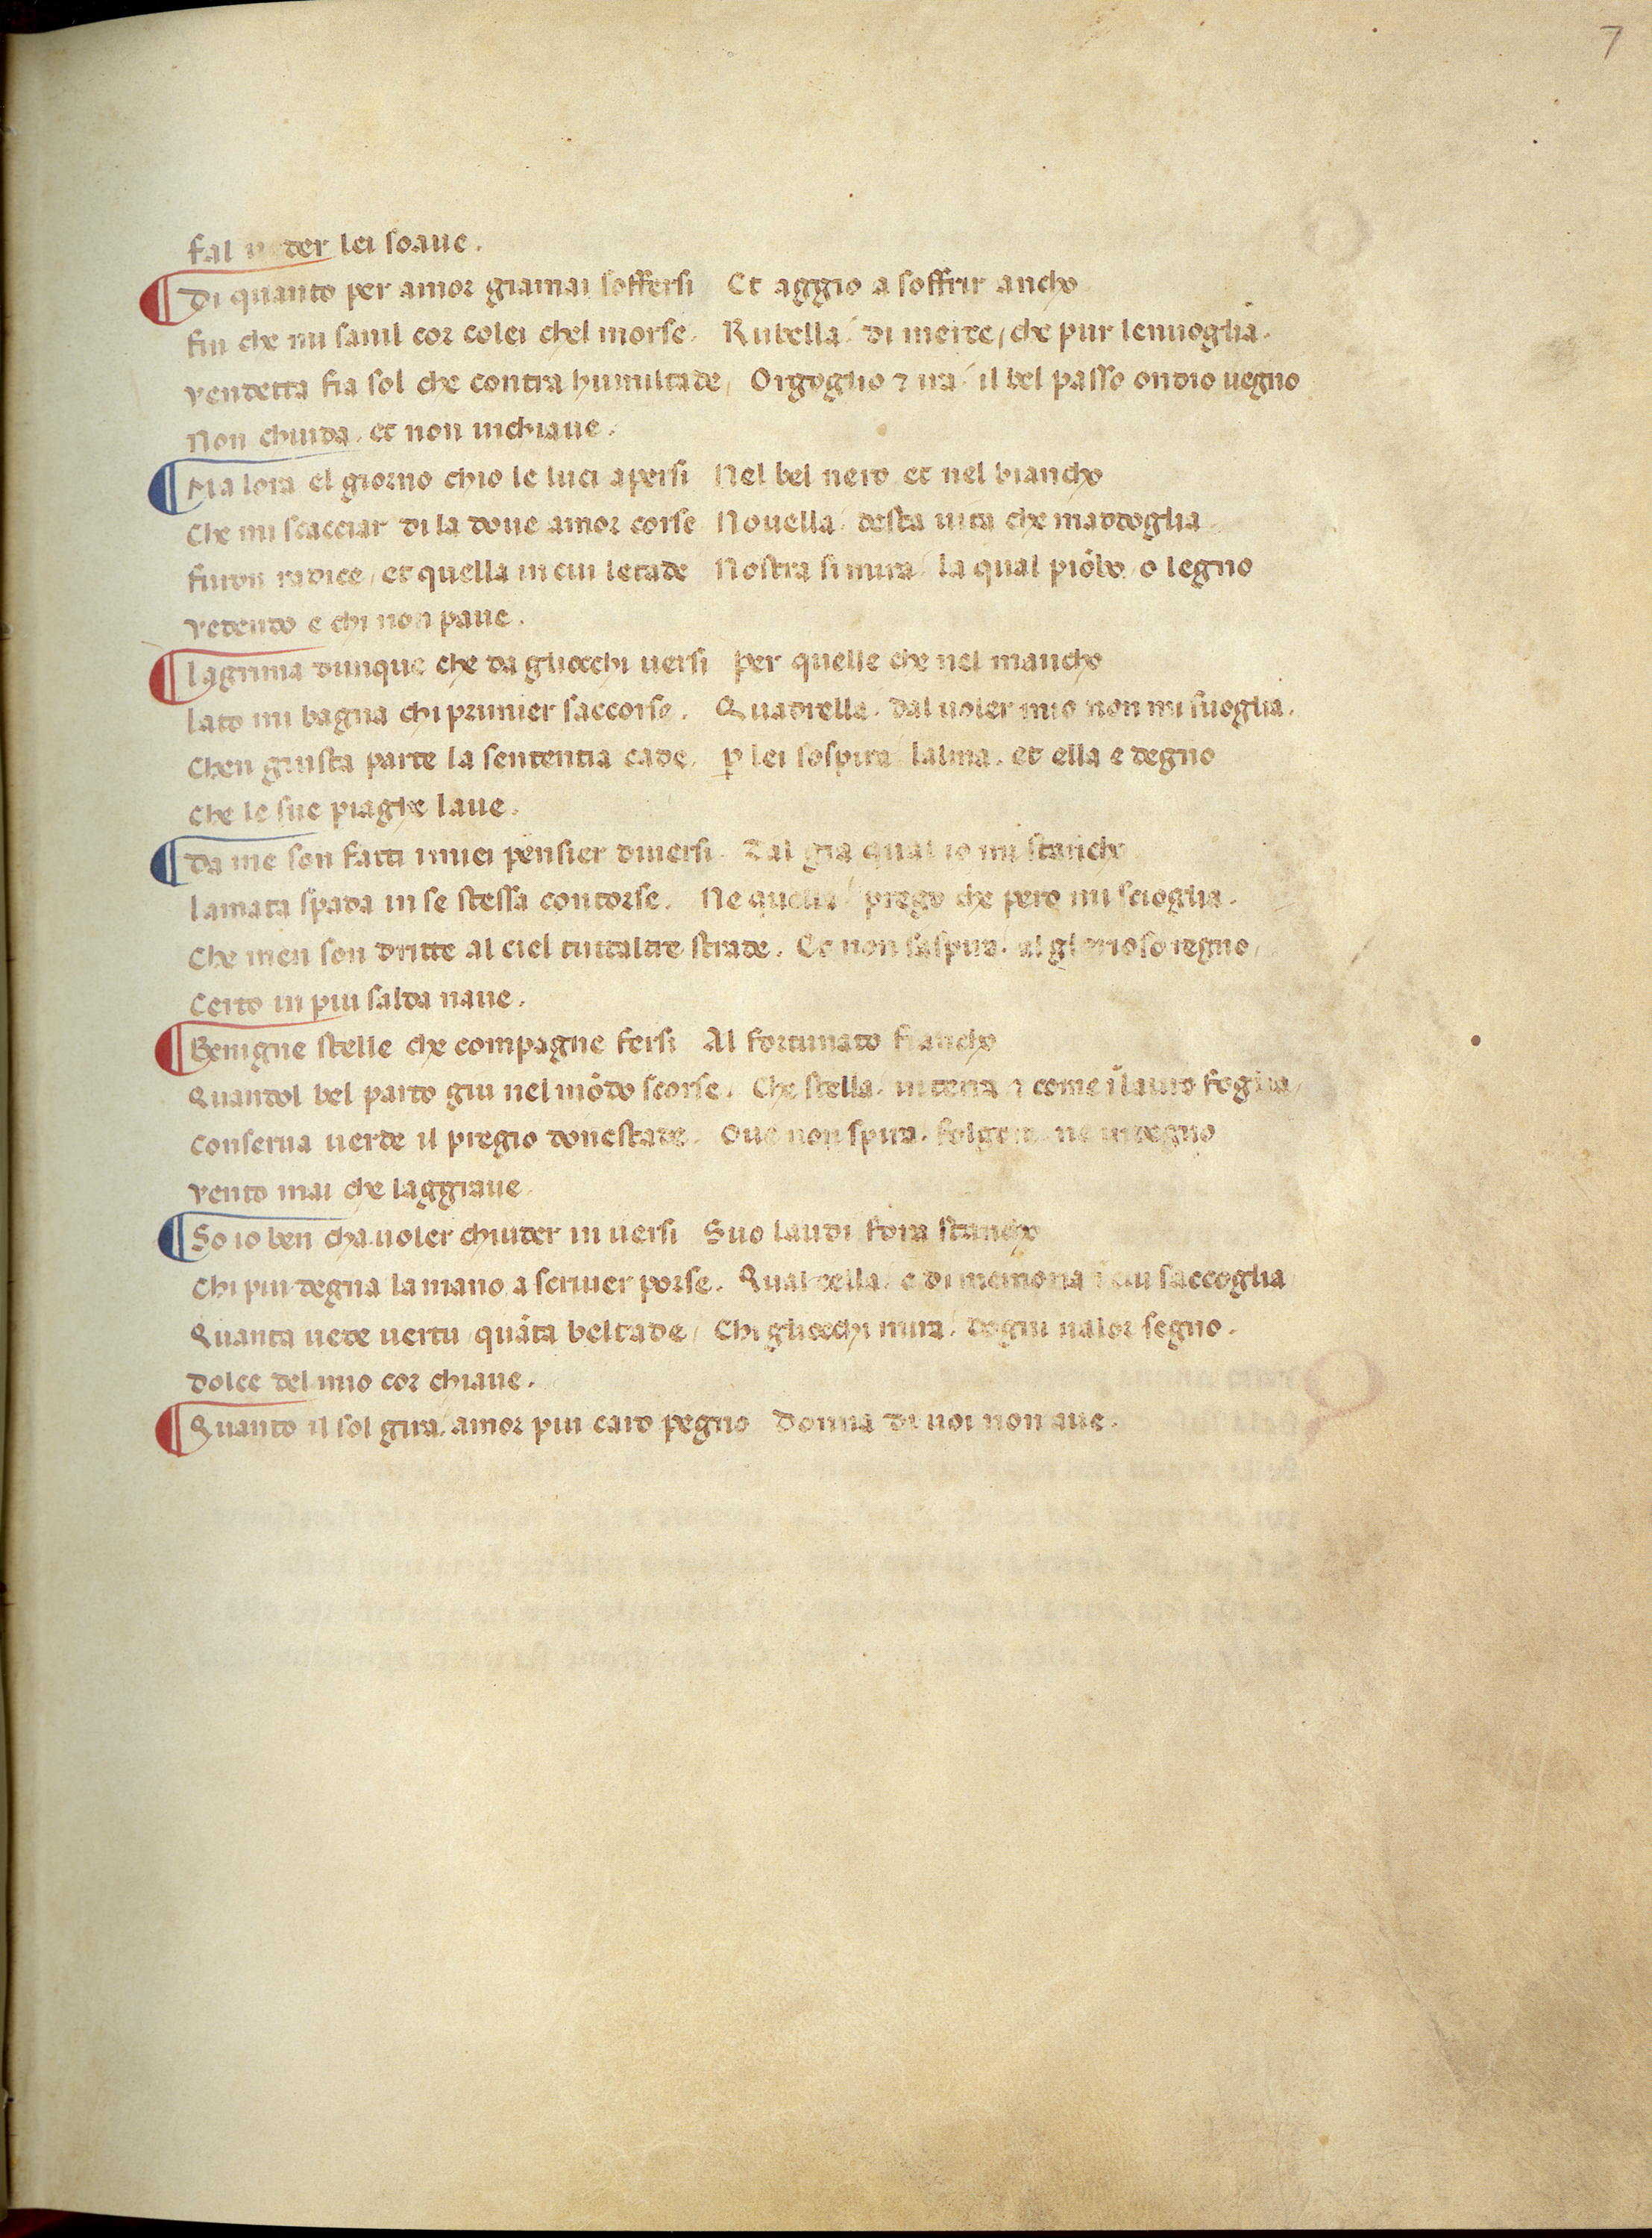 7
Fal ueder lei soaue.
Di quanto per amor giamai soffersi Et aggio a soffrir ancho
Fin che mi sanil cor colei chel morse. Rubella. di merce/ che pur lenuoglia.
Vendetta fia sol che contra humiltade/ Orgoglio ⁊ ira/ il bel passo ondio uegno
Non chiuda. et non inchiaue.
Ma lora el giorno chio le luci apersi Nel bel nero et nel biancho
Che mi scacciar di la doue amor corse Nouella/ desta uita che maddoglia.
Furon radice/ et quella in cui letade Nostra si mira/ la qual piōbo/ o legno
Vedendo e chi non paue.
Lagrima dunque che da gliocchi uersi Per quelle che nel mancho
Lato mi bagna chi primier saccorse. Quadrella. dal uoler mio non mi suoglia.
Chen giusta parte la sententia cade. ꝑ lei sospira lalma. et ella e degno
Che le sue piaghe laue.
Da me son fatti i miei pensier diuersi. Tal gia qual io mi stancho
Lamata spada in se stessa contorse. Ne quella/ prego che pero mi scioglia.
Che men son dritte al ciel tuttaltre strade. Et non saspira. al glorioso regno/
Certo in piu salda naue.
Benigne stelle che compagne fersi Al fortunato fiancho
Quandol bel parto giu nel mōdo scorse. Che stella. in terra ⁊ come ī lauro foglia/
Conserua uerde il pregio donestade. Oue non spira. folgore. ne indegno
Vento mai che laggraue.
So io ben cha uoler chiuder in uersi Suo laudi fora stancho
Chi piu degna la mano a scriuer porse. Qual cella/ e di memoria ī cui saccoglia
Quanta uede uertu/ quāta beltade/ Chi gliocchi mira/ dogni ualor segno.
Dolce del mio cor chiaue.
Quanto il sol gira. amor piu caro pegno Donna di uoi non aue.